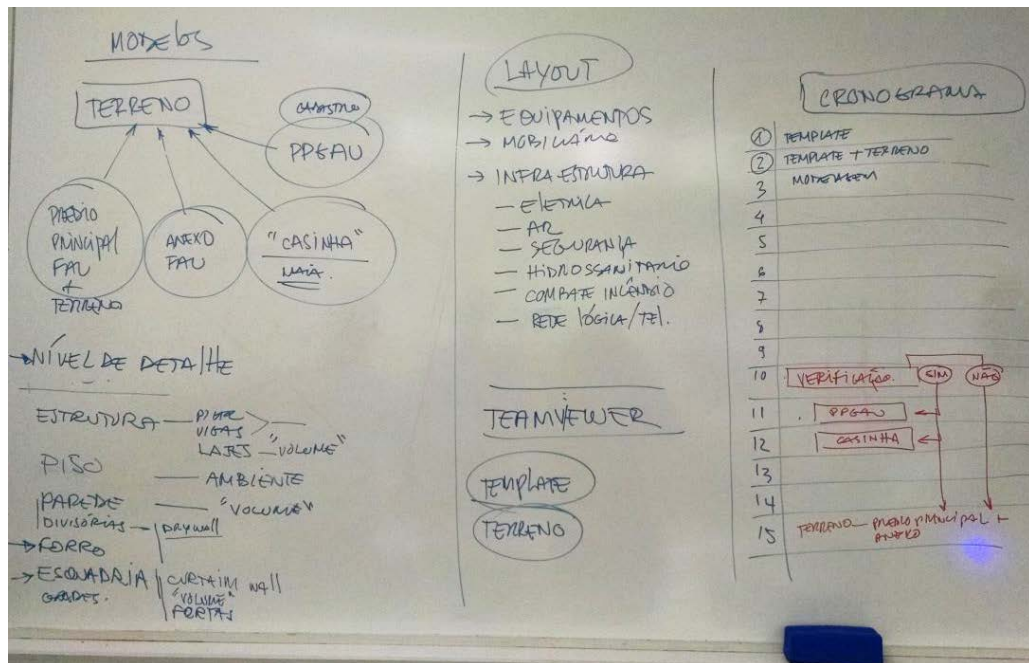 MODELOS
TERRENO
CADASTRO
PPGAU
PRÉDIO
PRINCIPAL
FAU
+
TERRENO
ANEXO
FAU
"CASINHA"
MAIA.
NÍVEL DE DETALHE
ESTRUTURA — PILAR
VIGAS
LAJES — "VOLUME"
PISO — AMBIENTE
PAREDE — "VOLUME"
DIVISÓRIAS — DRYWALL
→ FORRO
→ ESQUADRIA CURTAIM WALL
GRADES. "VOLUME"
PORTAS
LAYOUT
→ EQUIPAMENTOS
→ MOBILIÁRIO
→ INFRA-ESTRUTURA
— ELETRICA
— AR
— SEGURANÇA
— HIDROSSANITARIO
— COMBATE INCÊNDIO
— REDE LÓGICA/TEL.
TEAMVEWER
TEMPLATE
TERRENO
CRONOGRAMA
1 TEMPLATE
2 TEMPLATE + TERRENO
3 MODELAGEM
4
5
6
7
8
9
10 VERIFICAÇÃO. SIM NÃO
11 . PPGAU
12 CASINHA
13
14
15 TERRENO — PRÉDIO PRINCIPAL +
ANEXO